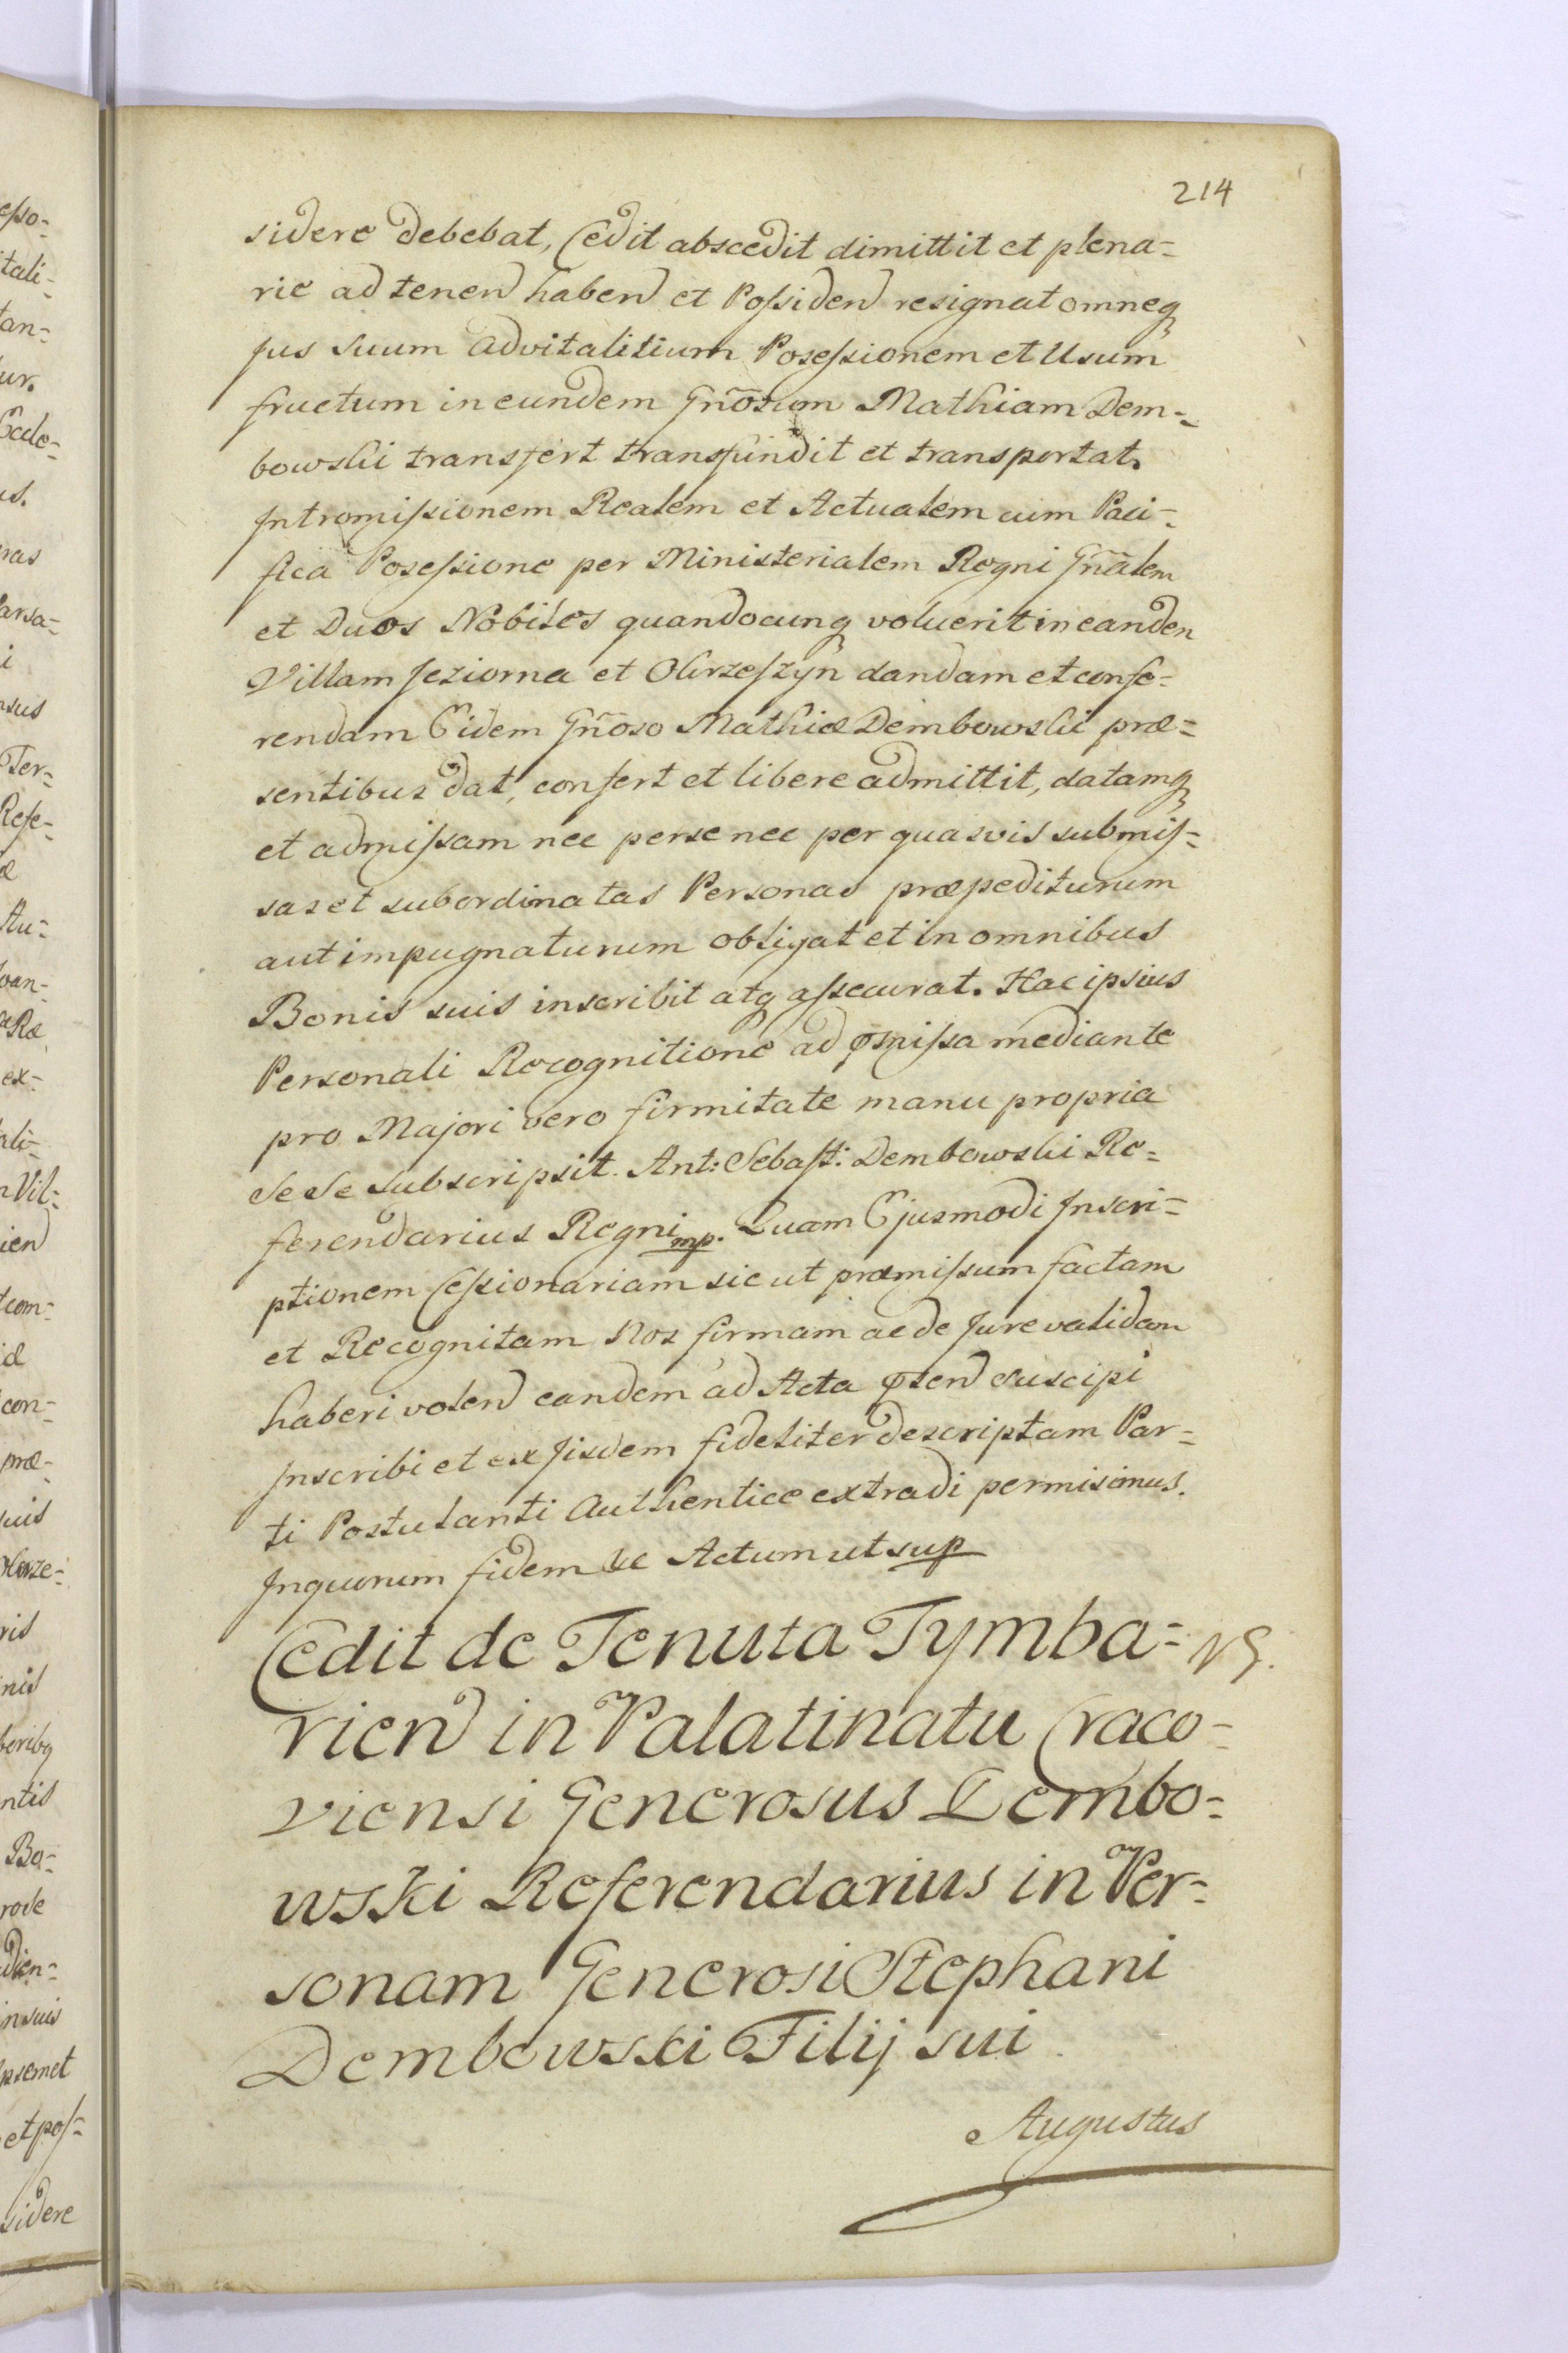 214
sidere debebat, Cedit abscedit dimittit et plena=
rie ad tenen̄ haben̄ et Poſsiden̄ resignat omneq
Jus Suum Advitalitium Poseſsionem et Usum
fructum in eundem Gñosum Mathiam Dem=
bowski transfert transfundit et transportat.
Intromiſsionem Realem et Actualem cum Paci=
fica Poseſsione per Ministerialem Regni Gñalem
et Duos Nobiles quandocunq voluerit in eanden
Villam Jeziorna et Obrzeſzyn dandam et confe=
rendam Eidem Gñoso Mathiæ Dembowski præ=
sentibus dat, confert et libere admittit, datamq
et admiſsam nec per se nec per quasvis submiſ=
sas et subordinatas Personas præpediturum
aut impugnaturum obligat et in omnibus
Bonis suis inscribit atq aſsecurat. Hac ipsius
Personali Recognitione ad pmiſsa mediante
pro Majori vero firmitate manu propria
Se Se Subscripsit. Ant: Sebaſt: Dembowski Re=
ferendarius Regni mp. Quam Ejusmodi Inscri=
ptionem Ceſsionariam sic ut præmiſsum factam
et Recognitam Nos firmam ac de Jure validam
haberi volen̄ eandem ad Acta pſen̄ Suscipi
Inscribi et ex Iisdem fideliter descriptam Par=
ti Postulanti Authentice extradi permisimus.
In quorum fidem &c Actum ut sup
Cedit de Tenuta Tymba= NS.
rien̄ in Palatinatu Craco=
viensi Generosus Dembo=
wski Referendarius in Per=
sonam Generosi Stephani
Dembowski Filij sui.
Augustus